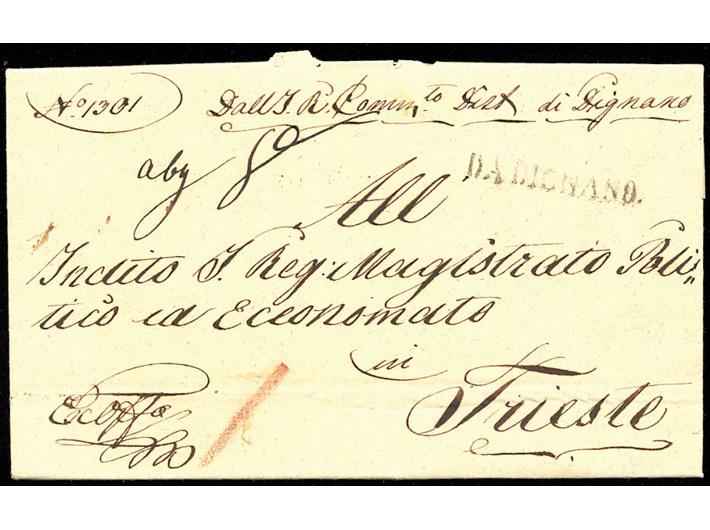 No 1301
Dall I. R. Comm.to Dist di Dignano
DA DIGNANO.
All
Inclito I. Reg: Magistrato Poli-
tico ed Economato
in
Trieste
Ex offo